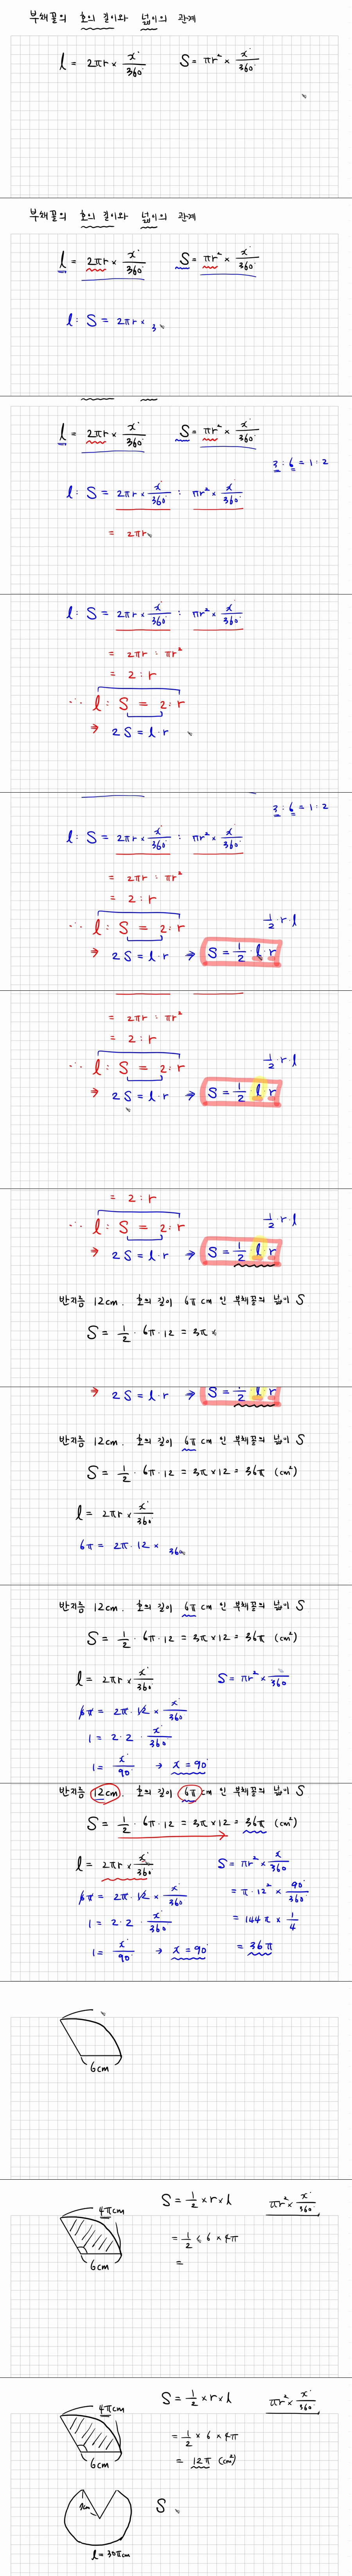 부채꼴의 호의 길이와 넓이의 관계
l = 2πr × x°/360° S = πr² × x°/360°
부채꼴의 호의 길이와 넓이의 관계
l = 2πr × x°/360° S = πr² × x°/360°
l : S = 2πr × 3
l = 2πr × x°/360° S = πr² × x°/360°
3 : 6 = 1 : 2
l : S = 2πr × x°/360° : πr² × x°/360°
= 2πr
l : S = 2πr × x°/360° : πr² × x°/360°
= 2πr : πr²
= 2 : r
∴ l : S = 2 : r
→ 2S = l·r
3 : 6 = 1 : 2
l : S = 2πr × x°/360° : πr² × x°/360°
= 2πr : πr²
= 2 : r
∴ l : S = 2 : r 1/2·r·l
→ 2S = l·r → S = 1/2 l·r
= 2πr : πr²
= 2 : r
∴ l : S = 2 : r 1/2·r·l
→ 2S = l·r → S = 1/2 l r
= 2 : r
∴ l : S = 2 : r 1/2·r·l
→ 2S = l·r → S = 1/2 l·r
반지름 12cm. 호의 길이 6π cm 인 부채꼴의 넓이 S
S = 1/2 · 6π · 12 = 3π ×
→ 2S = l·r → S = 1/2 l·r
반지름 12cm. 호의 길이 6π cm 인 부채꼴의 넓이 S
S = 1/2 · 6π · 12 = 3π × 12 = 36π (cm²)
l = 2πr × x°/360°
6π = 2π · 12 × 360
반지름 12cm. 호의 길이 6π cm 인 부채꼴의 넓이 S
S = 1/2 · 6π · 12 = 3π × 12 = 36π (cm²)
l = 2πr × x°/360° S = πr² × x/360
6π = 2π · 12 × x°/360°
1 = 2 · 2 · x°/360°
1 = x°/90° → x = 90°
반지름 12cm. 호의 길이 6π cm 인 부채꼴의 넓이 S
S = 1/2 · 6π · 12 = 3π × 12 = 36π (cm²)
l = 2πr × x°/360° S = πr² × x/360
6π = 2π · 12 × x°/360° = π · 12² × 90°/360°
1 = 2 · 2 · x°/360° = 144π × 1/4
1 = x°/90° → x = 90° = 36π
6cm
4πcm S = 1/2 × r × l πr² × x°/360°
= 1/2 × 6 × 4π
6cm =
4πcm S = 1/2 × r × l πr² × x°/360°
= 1/2 × 6 × 4π
6cm = 12π (cm²)
S
l = 30πcm